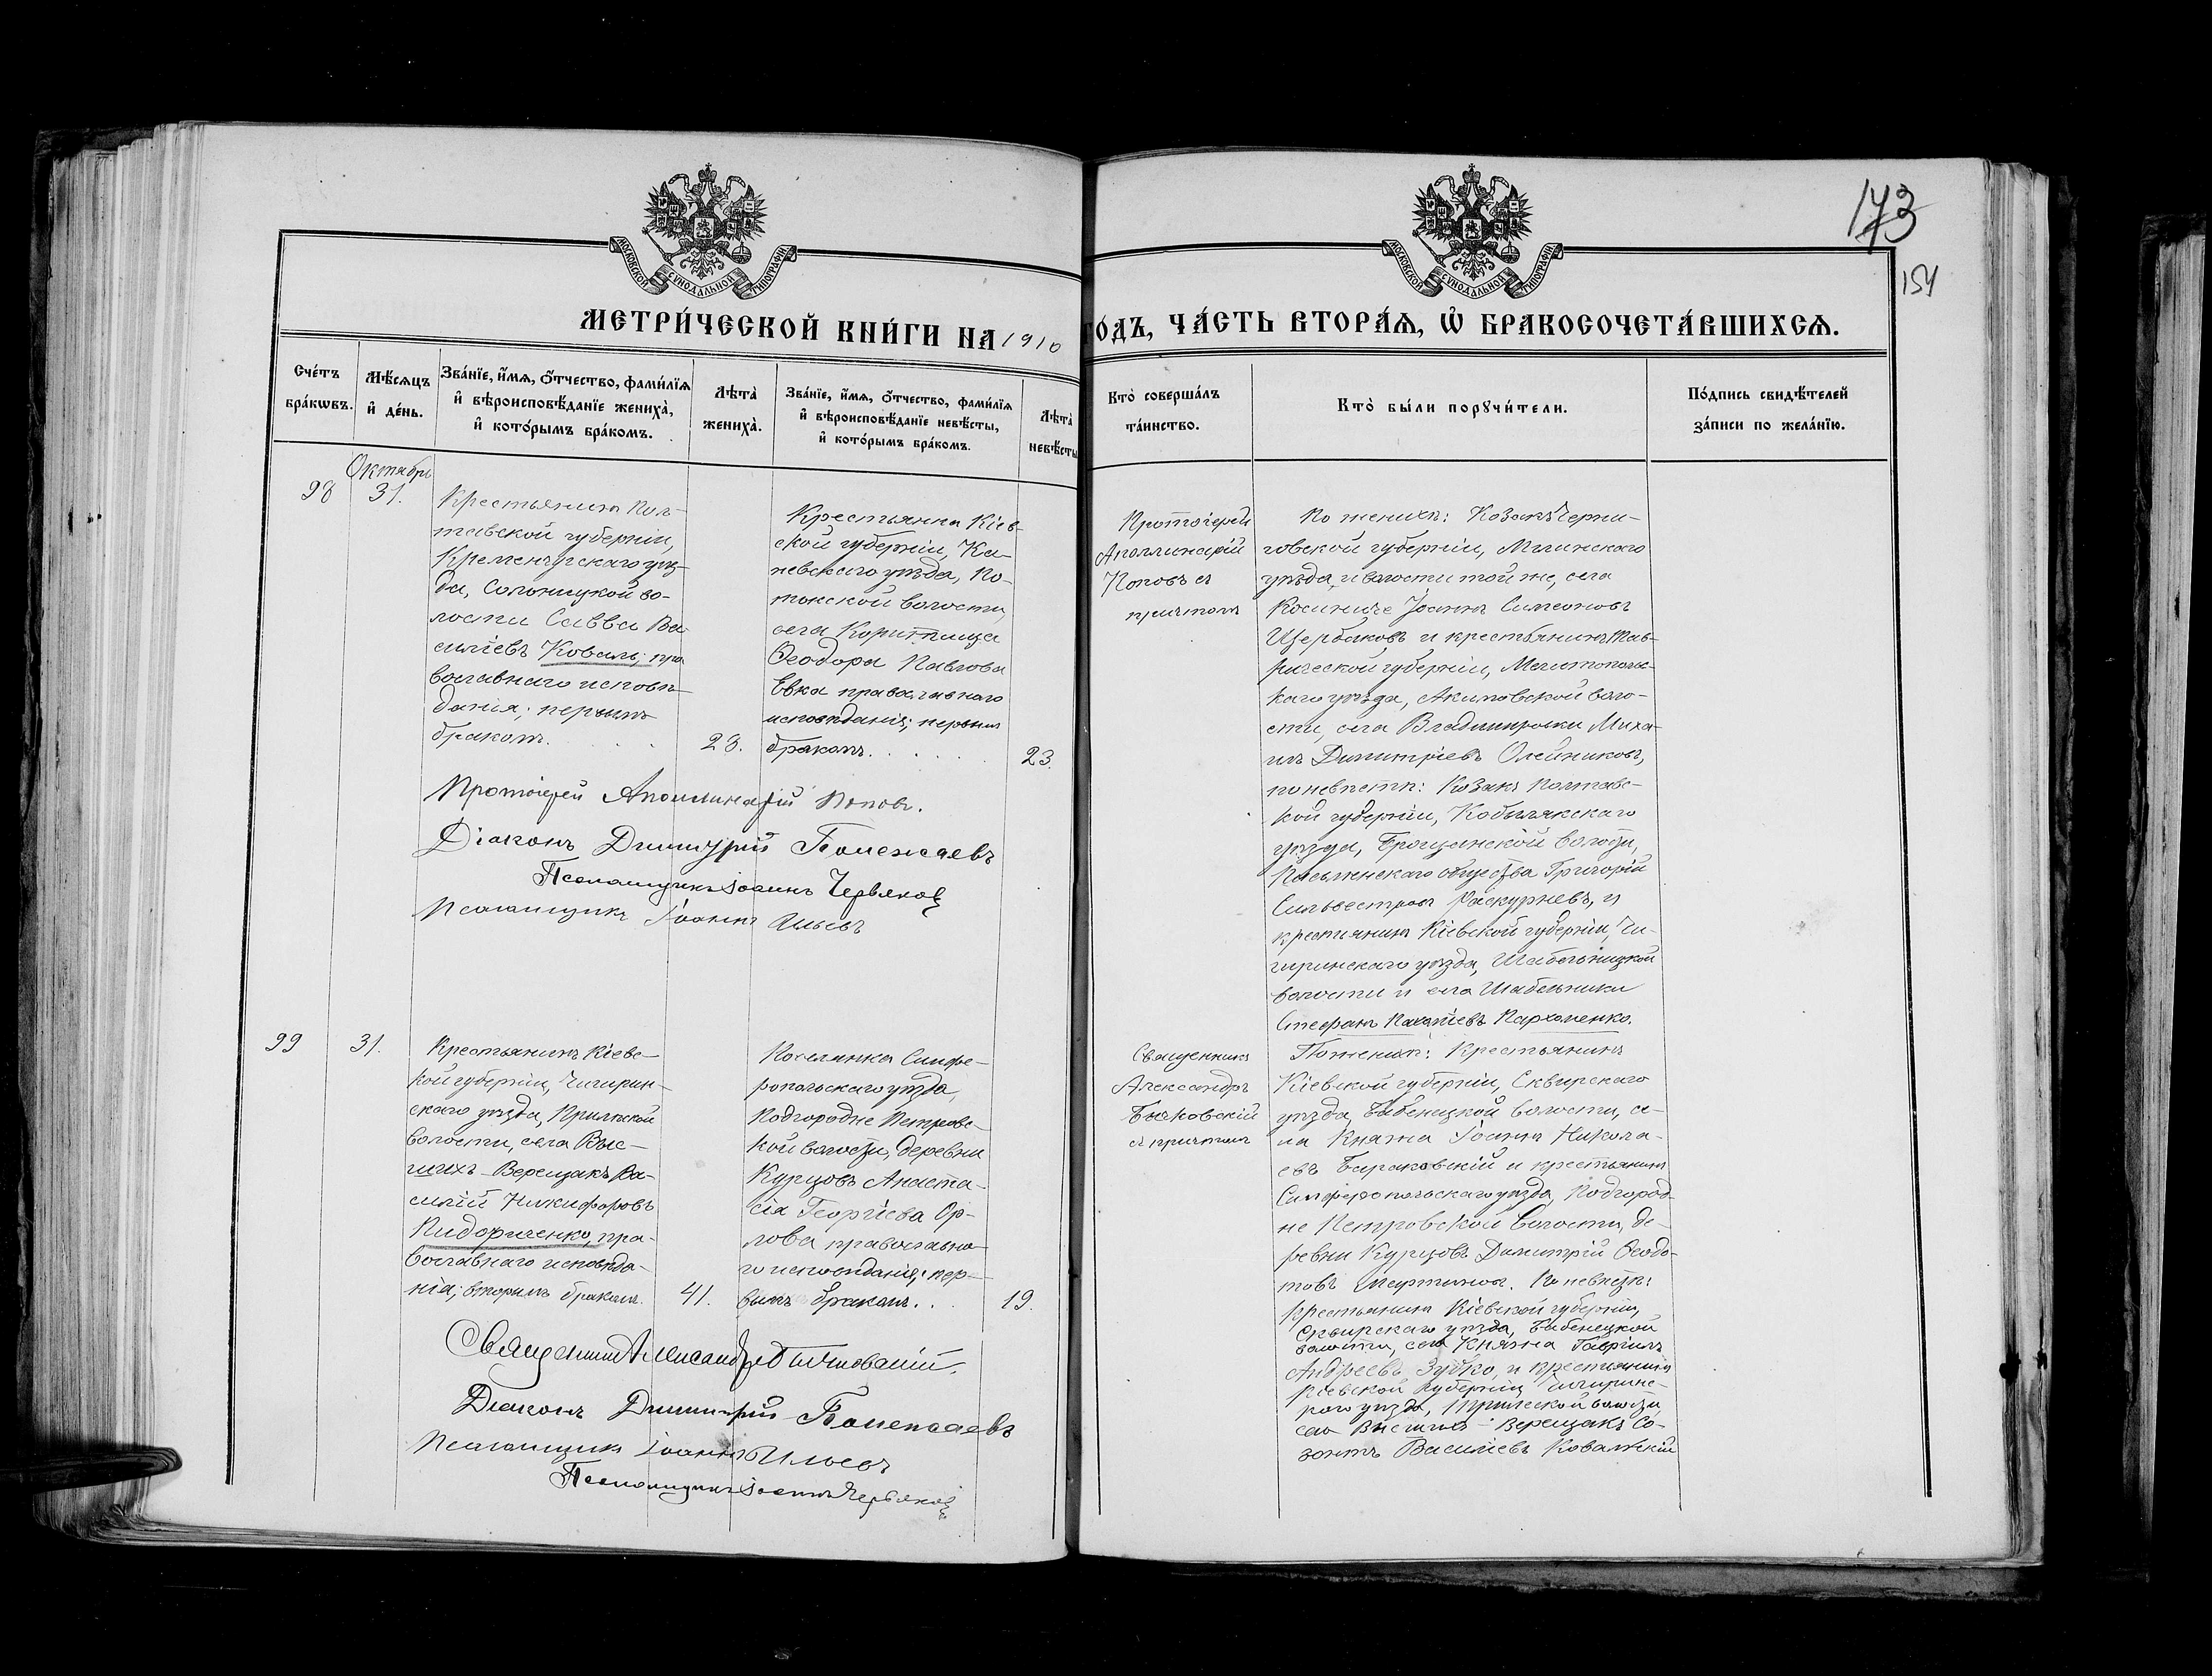 173
154
МОСКОВСКОЙ СѴНОДАЛЬНОЙ ТИПОГРАФІИ
МОСКОВСКОЙ СѴНОДАЛЬНОЙ ТИПОГРАФІИ
МЕТРИ́ЧЕСКОЙ КНИ́ГИ НА 1910
ГО́ДЪ, ЧА́СТЬ ВТОРА́Ѧ, Ѽ БРАКОСОЧЕТА́ВШИХСѦ.
Сче́тъ
бра́кѡвъ.
Мѣ́сѧцъ
и҆ де́нь.
Зва́нїе, и҆́мѧ, о҆́тчество, фами́лїѧ
и҆ вѣроисповѣ́данїе жениха̀,
и҆ кото́рымъ бра́комъ.
Лѣта̀
жениха̀.
Зва́нїе, и҆́мѧ, о҆́тчество, фами́лїѧ
и҆ вѣроисповѣ́данїе невѣ́сты,
и҆ кото́рымъ бра́комъ.
Лѣта̀
невѣ́сты
Кто̀ соверша́лъ
та́инство.
Кто̀ бы́ли порꙋчи́тели.
По́дпись свидѣ́телей
за́писи по жела́нїю.
Октябрь
98
31.
Крестьянинъ Пол-
тавской губерніи,
Кременчугскаго уѣз-
да, Солоницкой во-
лости Савва Ва-
силіевъ Коваль; пра
вославнаго исповѣ-
данія; первымъ
бракомъ.
28.
Крестьянка Кіев-
ской губерніи, Ка-
невскаго уѣзда, По-
токской волости,
села Коритища
Ѳеодора Павлова
Евка православнаго
исповѣданія; первымъ
бракомъ.
23.
Протоіерей
Аполлинарій
Поповъ съ
причтомъ
По женихѣ: Козакъ Черни-
говской губерніи, Мглинскаго
уѣзда, и волости той же, села
Косиничи Іоаннъ Симеоновъ
Щербаковъ и крестьянинъ Тав-
рической губерніи, Мелитопольс-
каго уѣзда, Акимовской воло-
сти, села Владимировки Миха-
илъ Димитріевъ Олейниковъ,
по невѣстѣ: Козакъ Полтавс-
кой губерніи, Кобылякскаго
уѣзда, волости,
общества Григорій
Сильвестровъ и
крестьянинъ Кіевской губерніи, Чи-
гиринскаго уѣзда, Шабельницкой
волости и села Шабельники
Стефанъ Пархоменко.
Протоіерей Аполлинарій Поповъ.
Діаконъ Димитрій Полежаевъ
Псаломщикъ Іоаннъ Червяковъ
Псаломщикъ Іоаннъ Ильевъ
99
31.
Крестьянинъ Кіевс-
кой губерніи, Чигирин-
скаго уѣзда,
волости, села Выс-
шихъ-Верещакъ Ва-
силій Никифоровъ
Пидориченко, пра-
вославнаго исповѣда-
нія; вторымъ бракомъ.
41.
Поселянка Симфе-
ропольскаго уѣзда,
Подгородне Петровс-
кой волости, деревни
Курцовъ Анаста-
сія Георгіева Ор-
лова православна-
го исповѣданія; пер-
вымъ бракомъ.
19.
Священникъ
Александръ
Бычковскій
съ причтомъ
По женихѣ: Крестьянинъ
Кіевской губерніи, Сквирскаго
уѣзда, волости, се-
ла Княжа Іоаннъ Никола-
евъ и крестьянинъ
Симферопольскаго уѣзда, Подгород-
не Петровской волости, де-
ревни Курцовъ Димитрій Ѳеодо-
товъ Мартиновъ. По невѣстѣ:
крестьянинъ Кіевской губерніи,
Сквирскаго уѣзда,
волости, села Княжа Гавріилъ
Андреевъ Зубко, и крестьянинъ
Кіевской губерніи, Чигиринс-
каго уѣзда, волости,
села Высшихъ-Верещакъ Со-
зонтъ Василіевъ Ковалѣскій
Священникъ Александръ Бычковскій.
Діаконъ Димитрій Полежаевъ
Псаломщикъ Іоаннъ Ильевъ
Псаломщикъ Іоаннъ Червяковъ